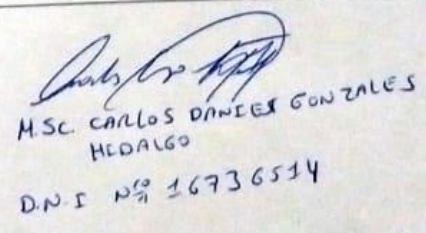 M.SC. CARLOS DANIEL GONZALES
HIDALGO
D.N.I Nº 16736514